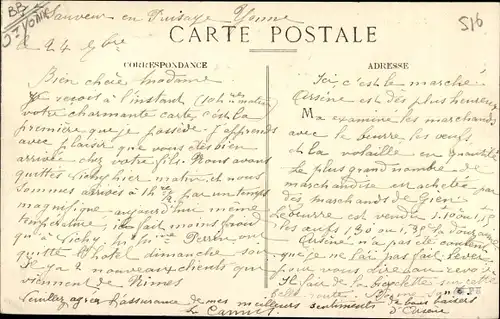 BB
Yonne
516
Sauveur en Puisaye Yonne
24 9bre
CARTE POSTALE
CORRESPONDANCE
ADRESSE
Bien chère Madame
Je reçois à l'instant (10h du matin)
votre charmante carte, c'est la
première que je possède. J'apprends
avec plaisir que vous êtes bien
arrivée chez votre fils. Nous avons
quittés Vichy hier matin, et nous
sommes arrivés à 1h par un temps
magnifique aujourd'hui même
température, il fait moins froid
qu'à Vichy. Perrin ont
quitté l'hôtel dimanche soir
Il y a 2 nouveaux clients qui
viennent de Nîmes
Veuillez agréer l'assurance de mes meilleurs sentiments de bons baisers
Ici c'est le marché
Arsène est des plus heureux
Ma examine les marchands
avec le beurre les œufs
et la volaille en quantité
Le plus grand nombre de
marchandise est achetés par
des marchands de Gien
Le beurre est vendu 1.10 ou 1,15
les œufs 1,30 ou 1,35 la douzaine
Arsène n'a pas été content
que je ne l'ai pas fait lever
pour vous dire au revoir
Il fait de la bicyclette sur cette
belle route.
d'Arsène